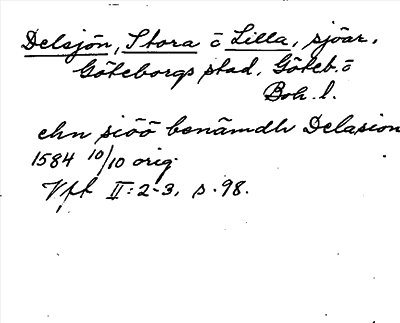 Delsjön, Stora o Lilla, sjöar.
Göteborgs stad. Göteb. o
Boh. l.
ehn siöö benämdh Delasion
1584 10/10 orig.
Vfk II:2-3, s. 98.